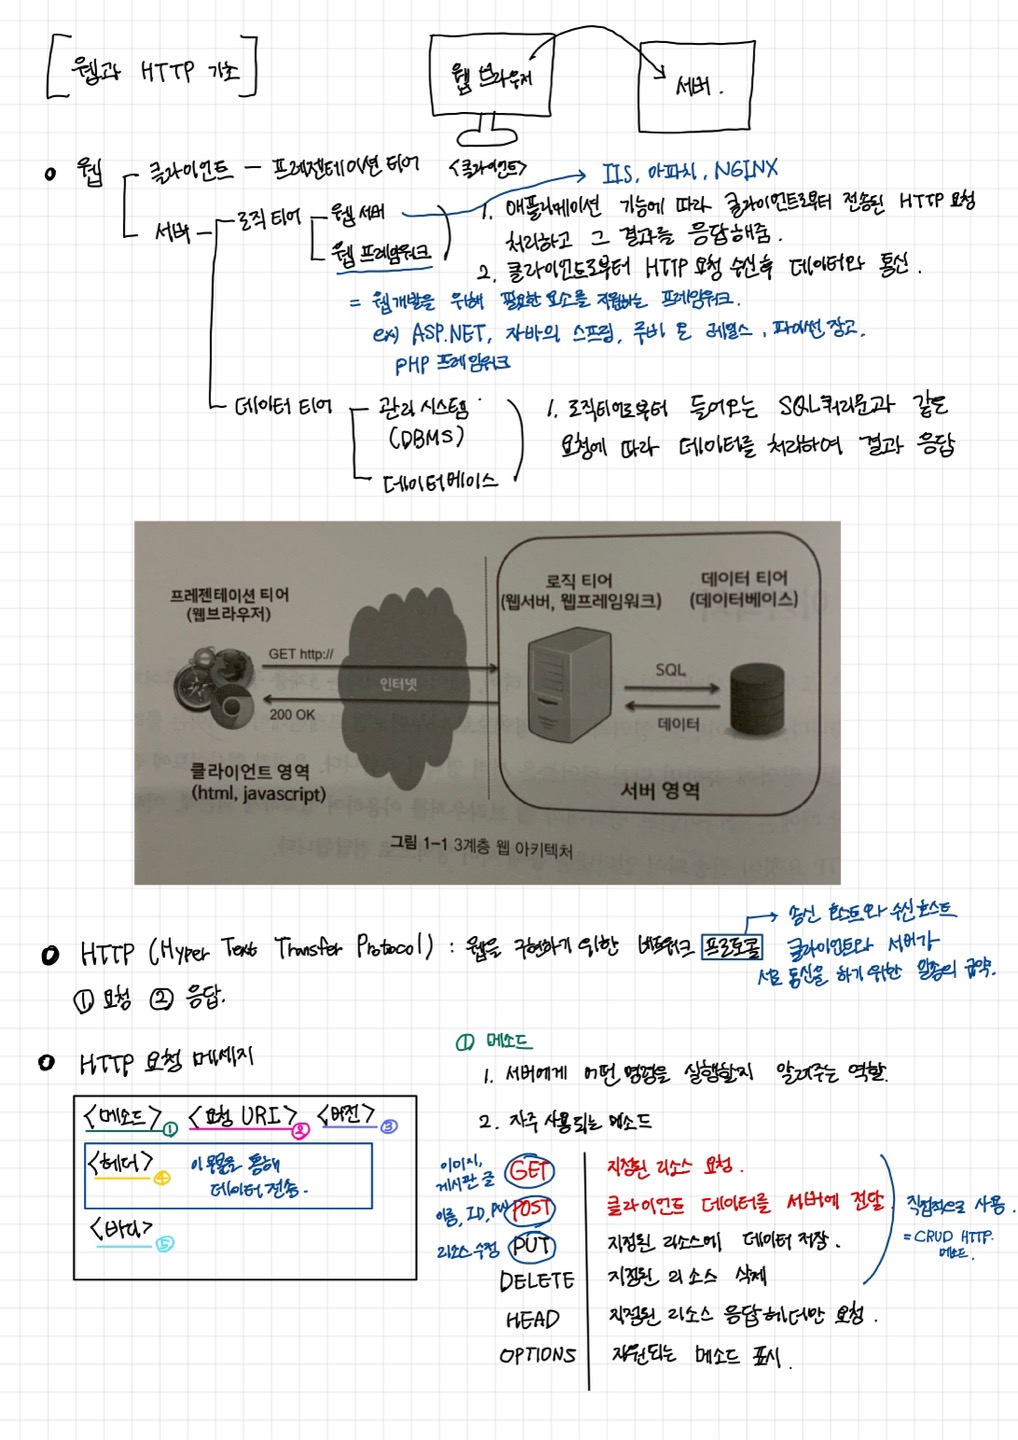 [웹과 HTTP 기초]
웹 브라우저
서버.
웹
클라이언트 - 프레젠테이션 티어 <클라이언트>
서버
로직 티어
웹 서버
웹 프레임워크
IIS, 아파치, NGINX
1. 애플리케이션 기능에 따라 클라이언트로부터 전송된 HTTP 요청
처리하고 그 결과를 응답해줌.
2. 클라이언트로부터 HTTP 요청 수신후 데이터와 통신.
= 웹개발을 위해 필요한 요소를 지원하는 프레임워크.
ex) ASP.NET, 자바의 스프링, 루비 온 레일스, 파이썬 장고,
PHP 프레임워크
데이터 티어
관리 시스템
(DBMS)
데이터베이스
1. 로직티어로부터 들어오는 SQL쿼리문과 같은
요청에 따라 데이터를 처리하여 결과 응답
프레젠테이션 티어
(웹브라우저)
GET http://
200 OK
인터넷
클라이언트 영역
(html, javascript)
로직 티어
(웹서버, 웹프레임워크)
데이터 티어
(데이터베이스)
SQL
데이터
서버 영역
그림 1-1 3계층 웹 아키텍처
송신 호스트와 수신호스트
HTTP (Hyper Text Transfer Protocol) : 웹을 구현하기 위한 네트워크 프로토콜
클라이언트와 서버가
서로 통신을 하기 위한 일종의 규약.
① 요청 ② 응답.
HTTP 요청 메세지
<메소드> ① <요청 URI> ② <버전> ③
<헤더> ④
이 부분을 통해
데이터 전송.
<바디> ⑤
① 메소드
1. 서버에게 어떤 명령을 실행할지 알려주는 역할.
2. 자주 사용되는 메소드
이미지,
게시판 글
GET 지정된 리소스 요청.
이름, ID, PW POST 클라이언트 데이터를 서버에 전달
리소스 수정 PUT 지정된 리소스에 데이터 저장.
DELETE 지정된 리소스 삭제
직접적으로 사용.
= CRUD HTTP
메소드.
HEAD 지정된 리소스 응답헤더만 요청.
OPTIONS 지원되는 메소드 표시.